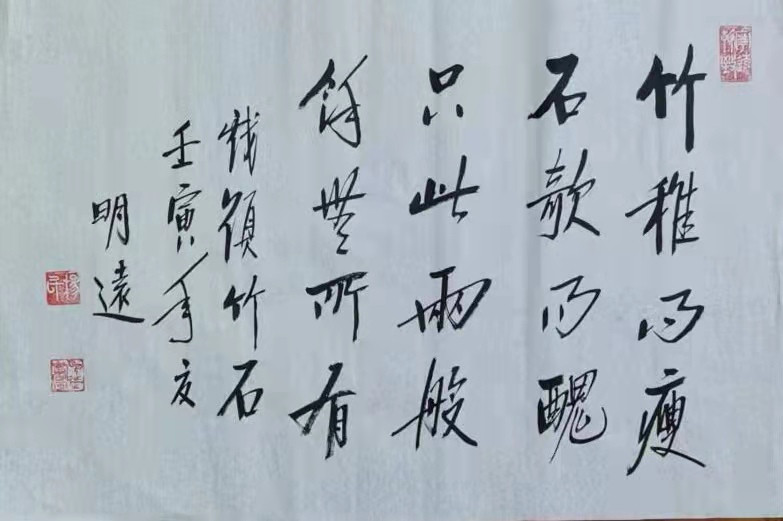 竹稚而瘦
石欹而醜
只此兩般
餘無所有
竹石
壬寅年夏
明遠